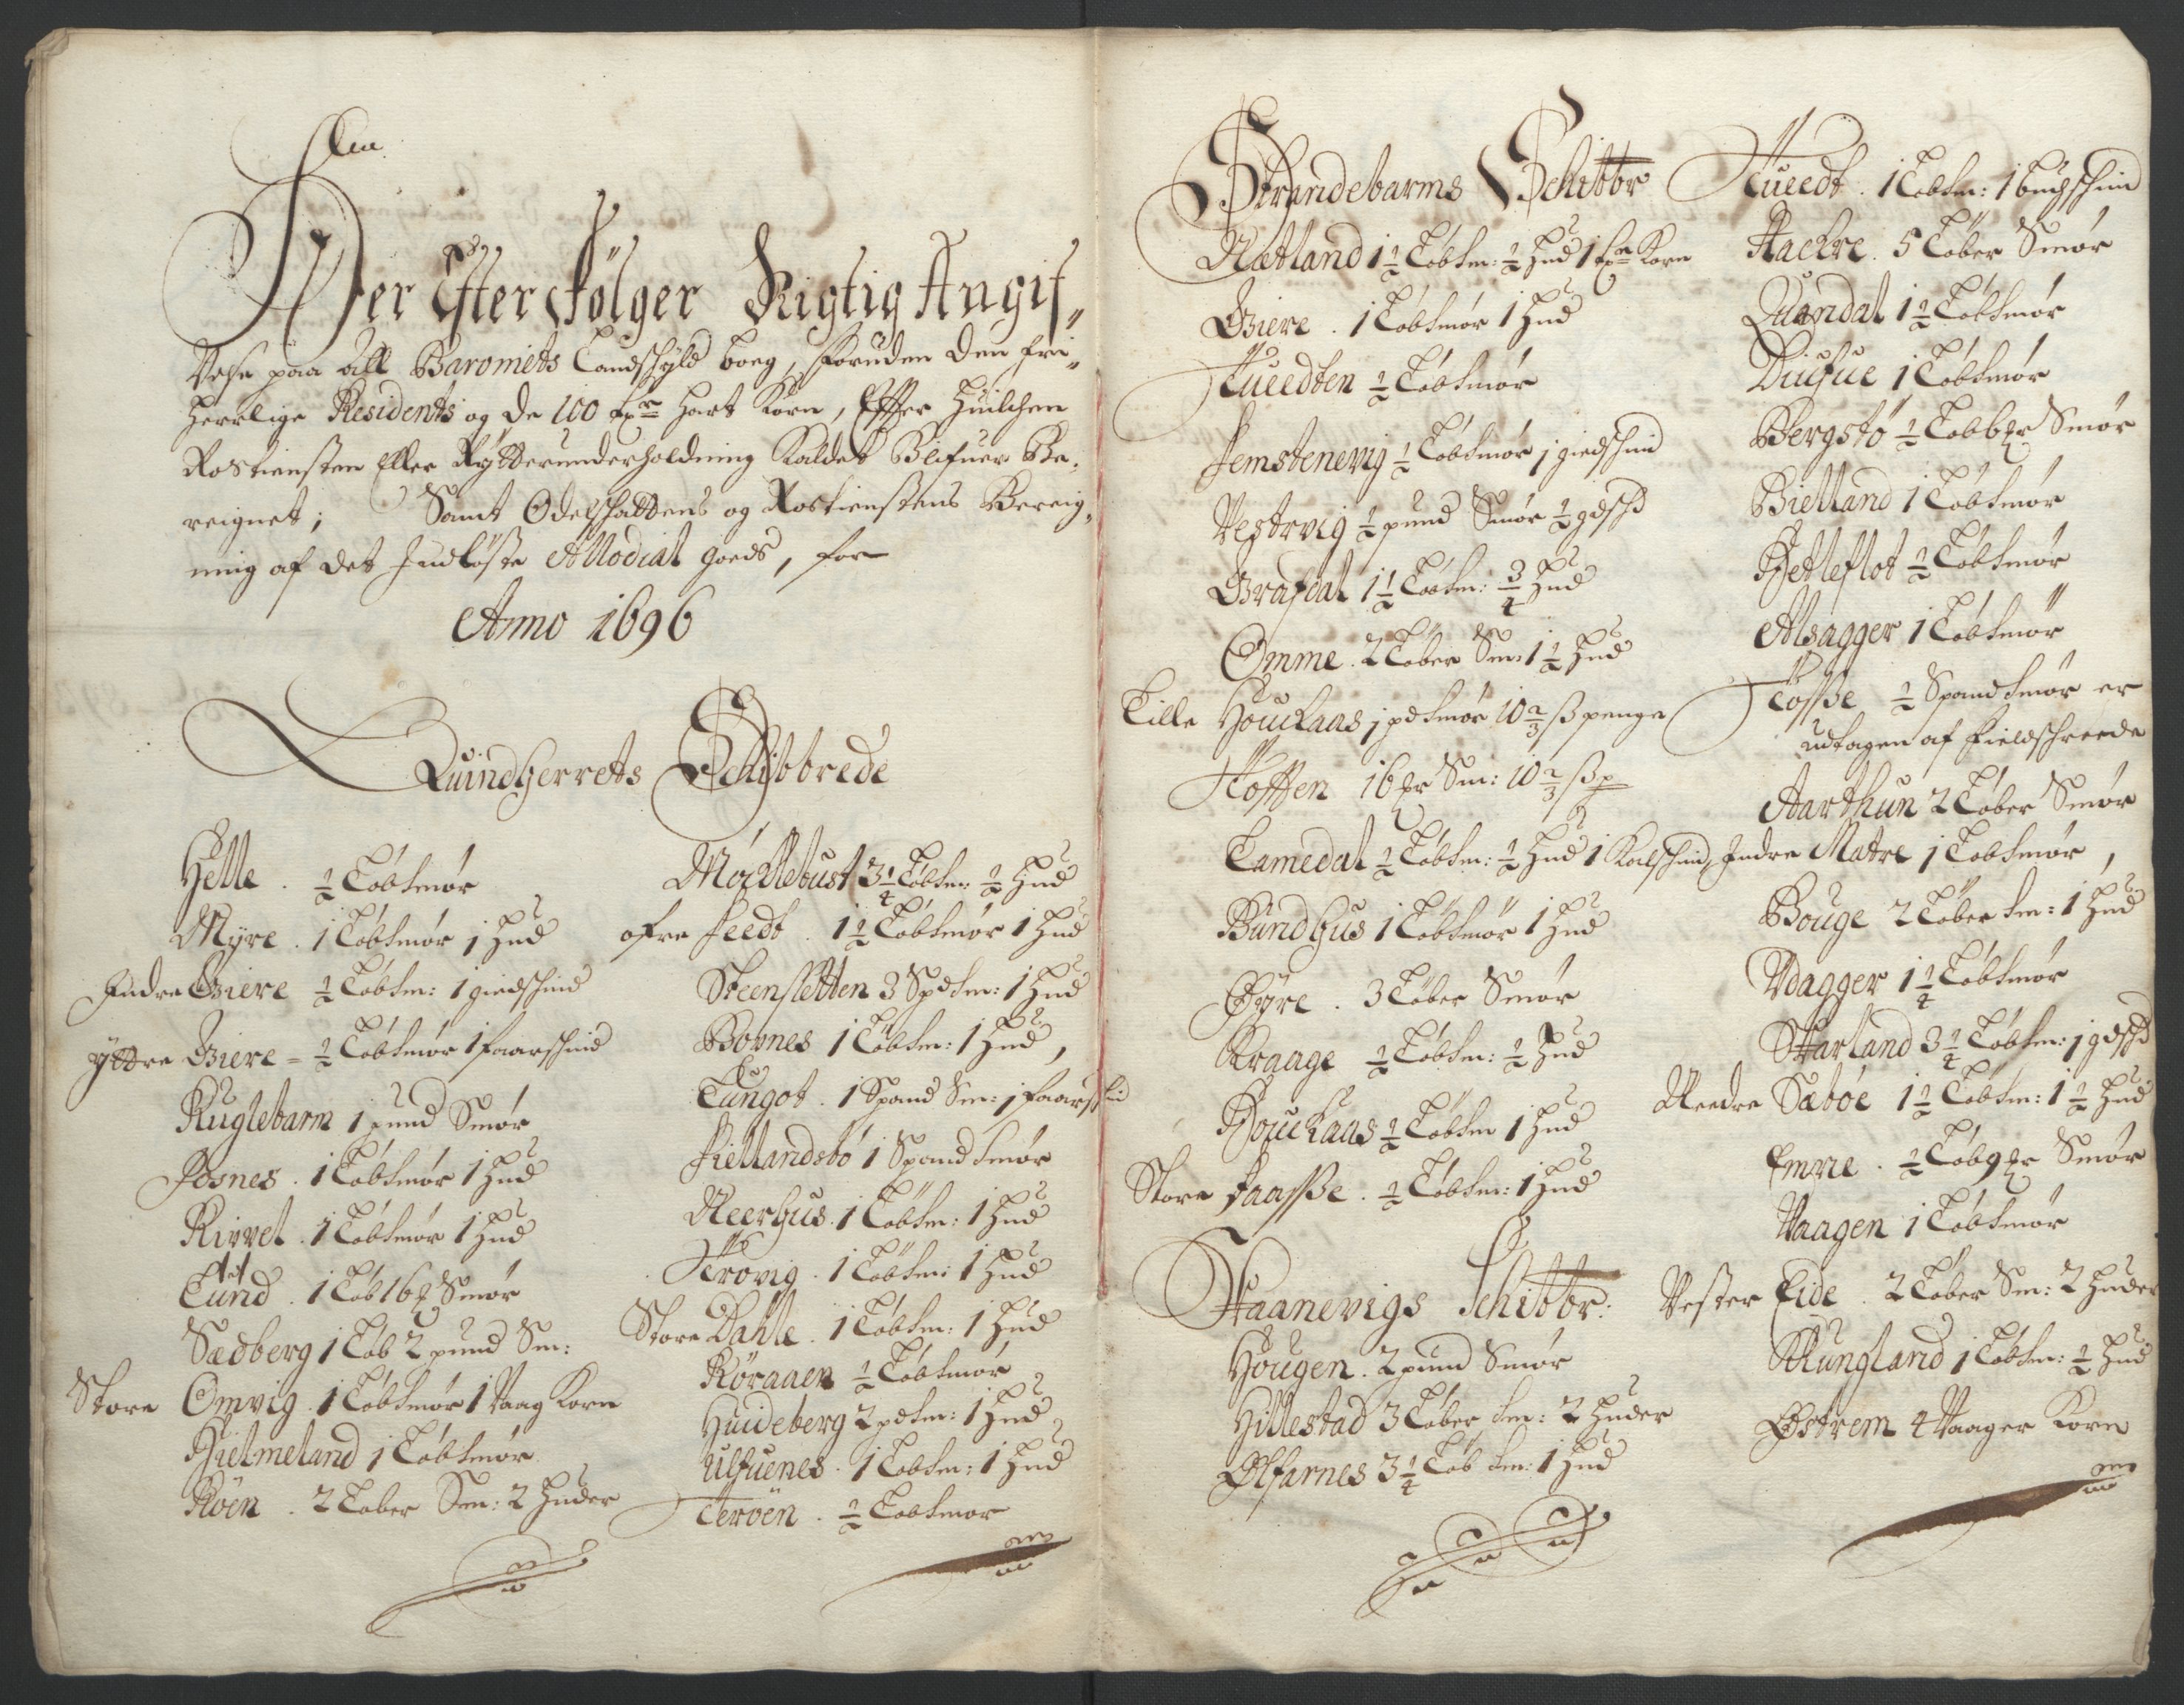 Her Efter følger Rigtig Angif„
velse paa all Baroniets Landschyld boeg, foruden den fri„
herrlige Residents og de 100 hart Korn, Effter huilchen
Rostiensten Eller Rytterunderholdning Kaldet Blifuer Be„
reignet; Samt Odelschattens og Rostienstens Bereig„
ning af det Indløste Allodial goeds, for
Anno 1696
Quindherrets Schibbrede
Helle . ½ Løb smør
Myre . 1 Løb smør 1 hud
Indre Giere ½ Løb sm: 1 giedschind
Yttre Giere - ½ Løb smør 1 faarschind
Kuglebarm 1 pund Smør
Fosnes . 1 Løb smør 1 hud
Rivvel . 1 Løb smør 1 hud
Lund . 1 Løb 16 Smør
Sædberg 1 Løb 2 pund Sm:
Store Omvig . 1 Løb smør 1 Vaag Korn
Hielmeland 1 Løb smør
Røen . 2 Løber Sm: 2 huder
Møcklebust 3¼ Løb sm: ½ hud
ofre Seedt . 1½ Løb smør 1 hud
Steensletten 3 Spd sm: 1 hud
Bovnes 1 Løb sm: 1 hud,
Tungot . 1 Spand Sm: 1 faarskind
Fiellandsbø 1 Spand smør
Neerhus . 1 Løb sm: 1 hud
Herøvig . 1 Løb sm: 1 hud
Store Dahle . 1 Løb sm: 1 hud
Røraaen ½ Løb smør
Huideberg 2 pd sm: 1 hud
Ulfuenes . 1 Løb sm: 1 hud
Terøen . ½ Løb smør
Strandebarms Schibbr
Nætland 1½ Løb sm: ½ hud 1 Korn
Giere . 1 Løb smør 1 hud
Tueedten ½ Løb smør
Femstenevig ½ Løb smør 1 giedschind
Vestrvig ½ pund Smør ½ gdschd
Grafdal 1½ Løb sm: ¾ hud
Omme . 2 Løber Sm: 1½ hud
Lille Houckaas 1 pd smør 10⅔ ß penge
Hoffen 16 Sm: 10⅔ ß p
Tamedal ½ Løb sm: ½ hud 1 Kalschind,
Bundhus 1 Løb smør 1 hud
Øyre . 3 Løber Smør
Kraage ½ Løb sm: ½ hud
Houckaas ½ Løb sm 1 hud
Store Saasse . ½ Løb sm: 1 hud
Haanevigs Schibbr:
Hougen . 2 pund Smør
Hillestad 3 Løber sm: 2 huder
Ølfarnes 3¼ Løb sm: 1 hud
Tueedt . 1 Løb sm: 1 buchschind
Aackre . 5 Løber Smør
Quandal 1½ Løb smør
Diufue 1 Løb smør
Bergstø ½ Løb 6 Smør
Bielland 1 Løb smør
Hetleflot ½ Løb smør
Alsagger 1 Løb smør
Fosse ½ Spand smør er
udtagen af Fieldschreede
Aarthun 2 Løber Smør
Indre Matre 1 Løb smør,
Bouge 2 Løber sm: 1 hud
Vdagger 1¼ Løb smør
Harland 3¼ Løb sm: 1 gdschd
Needre Sæbøe 1½ Løb sm: 1½ hud
Emvie . ½ Løb 9 Smør
Vaagen 1 Løb smør
Vester Eide . 2 Løber Sm: 2 huder
Rungland 1 Løb sm: ½ hud
Østrem 4 Vaager Korn